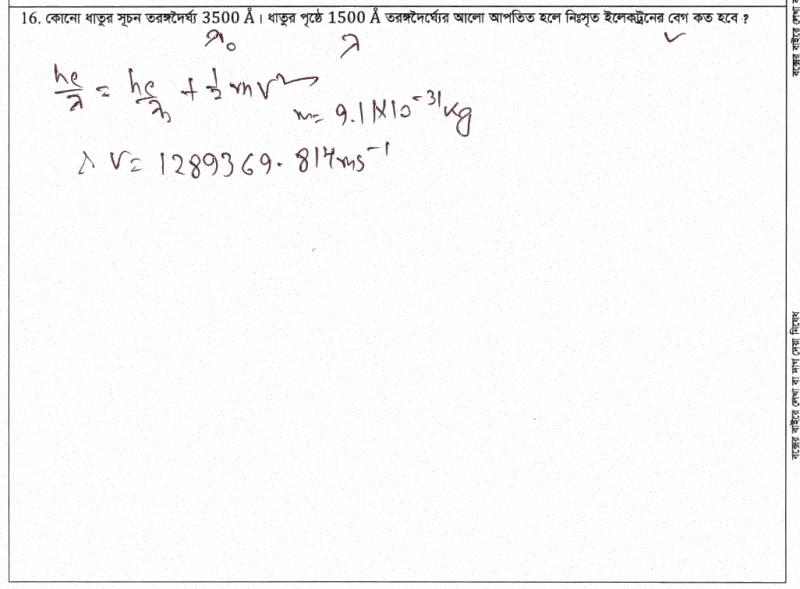 16. কোনো ধাতুর সূচন তরঙ্গদৈর্ঘ্য 3500 Å। ধাতুর পৃষ্ঠে 1500 Å তরঙ্গদৈর্ঘ্যের আলো আপতিত হলে নিঃসৃত ইলেকট্রনের বেগ কত হবে ?
λ₀ λ
hc/λ = hc/λ₀ + 1/2 mv²
m = 9.1×10⁻³¹ kg
V = 1289369.814 ms⁻¹
বক্সের বাইরে লেখা বা দাগ দেয়া নিষেধ